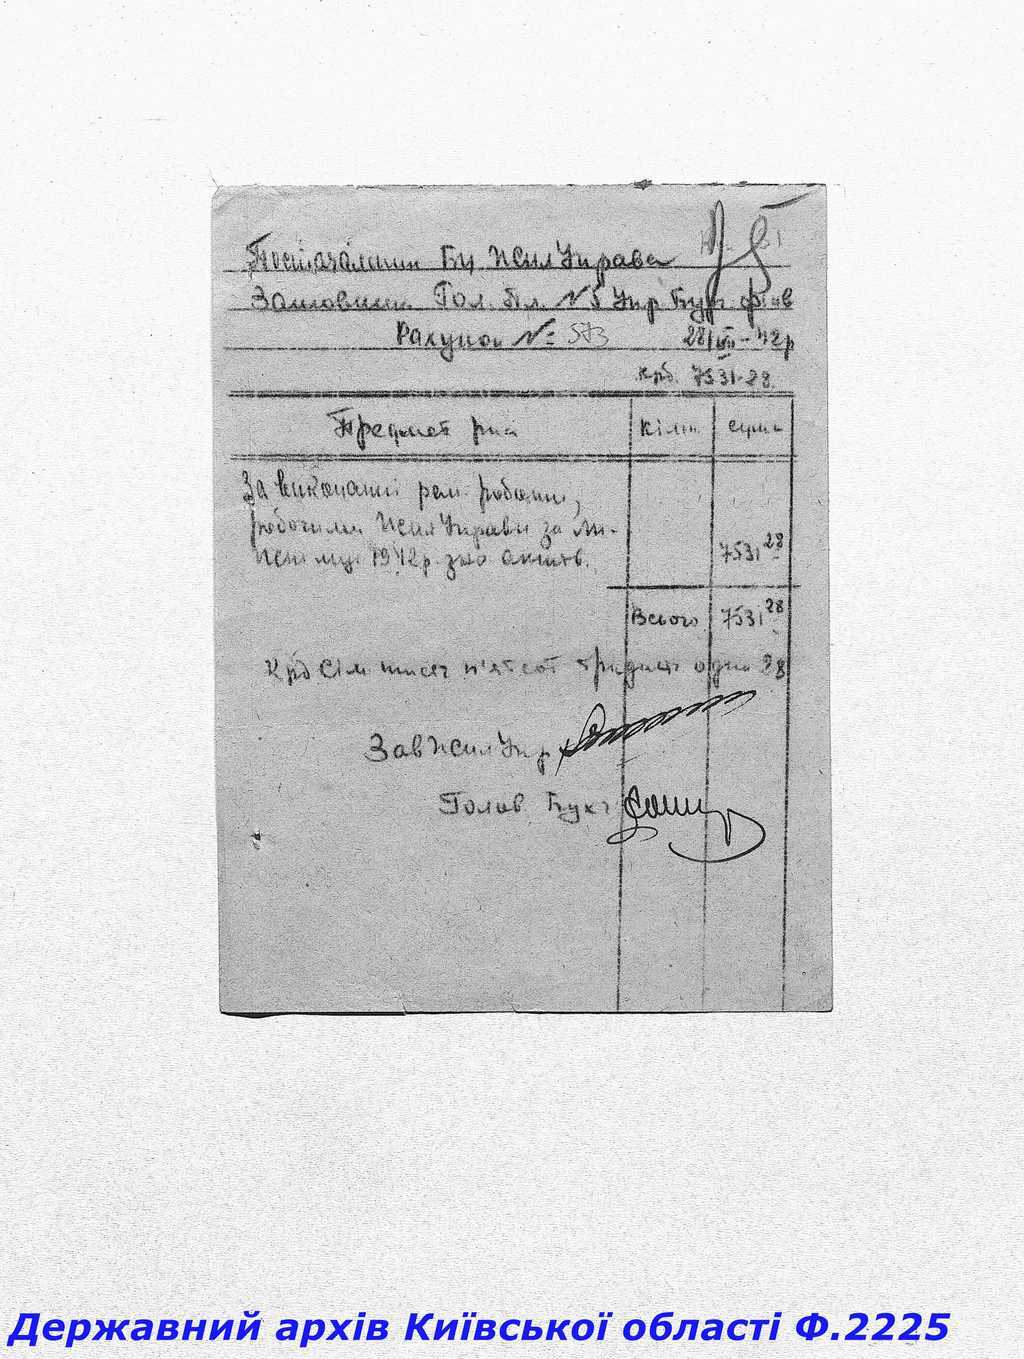 Постачальник Бц ЖилУправа
Замовник Гол. біл. № 5 Упр. Буч. фрів
Рахунок № 573 28/VII - 42р
крб. 7531-28
Предмет рах Кільк сума
За виконанні рем. роботи,
робочими ЖилУправи за Ли-
пень міц. 1942р. згно актів. 7531 28
Всього 7531 28
Крб сім тисяч п'ятсот тридцять одна 28
Зав ЖилУпр
Голов. Бухг
Державний архів Київської області Ф.2225